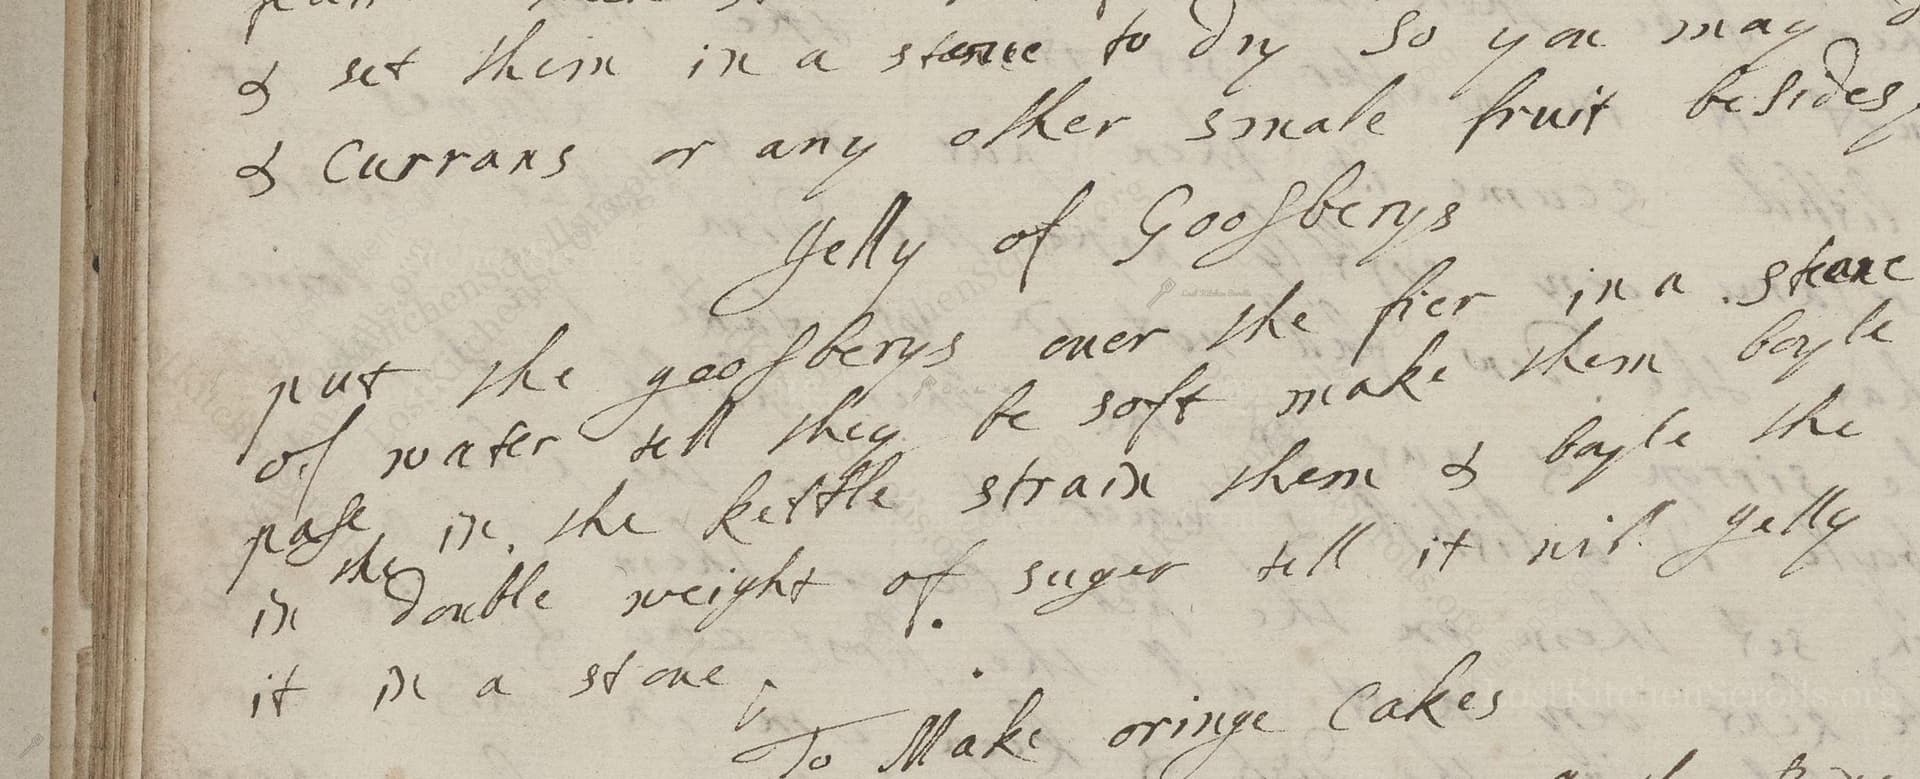 & set them in a stone to dry So you may
& Currans or any other smale fruit besides
Jelly of Goosberys
put the goosberys ouer the fier in a steane
of water tell they be soft make them boyle
in the kettle strain them & boyle the
in the double weight of suger tell it wil gelly
it in a stoue
To Make oringe Cakes
LostKitchenScrolls.org